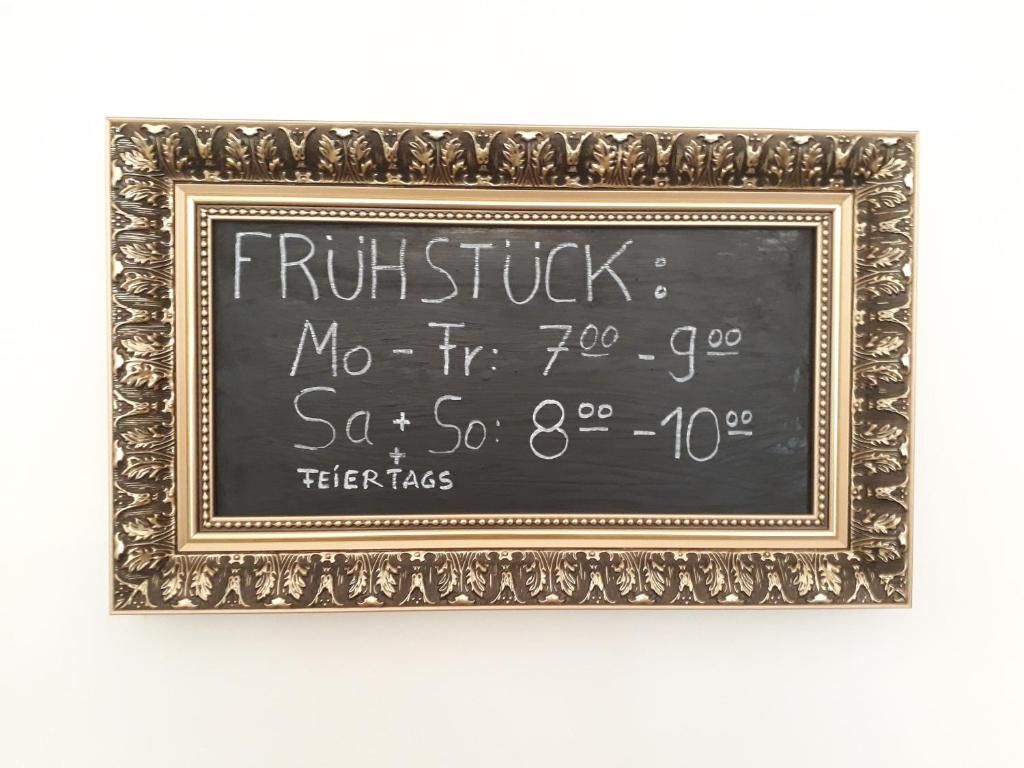 FRÜHSTÜCK:
Mo - Fr: 7⁰⁰ - 9⁰⁰
Sa + So: 8⁰⁰ - 10⁰⁰
+
FEIERTAGS